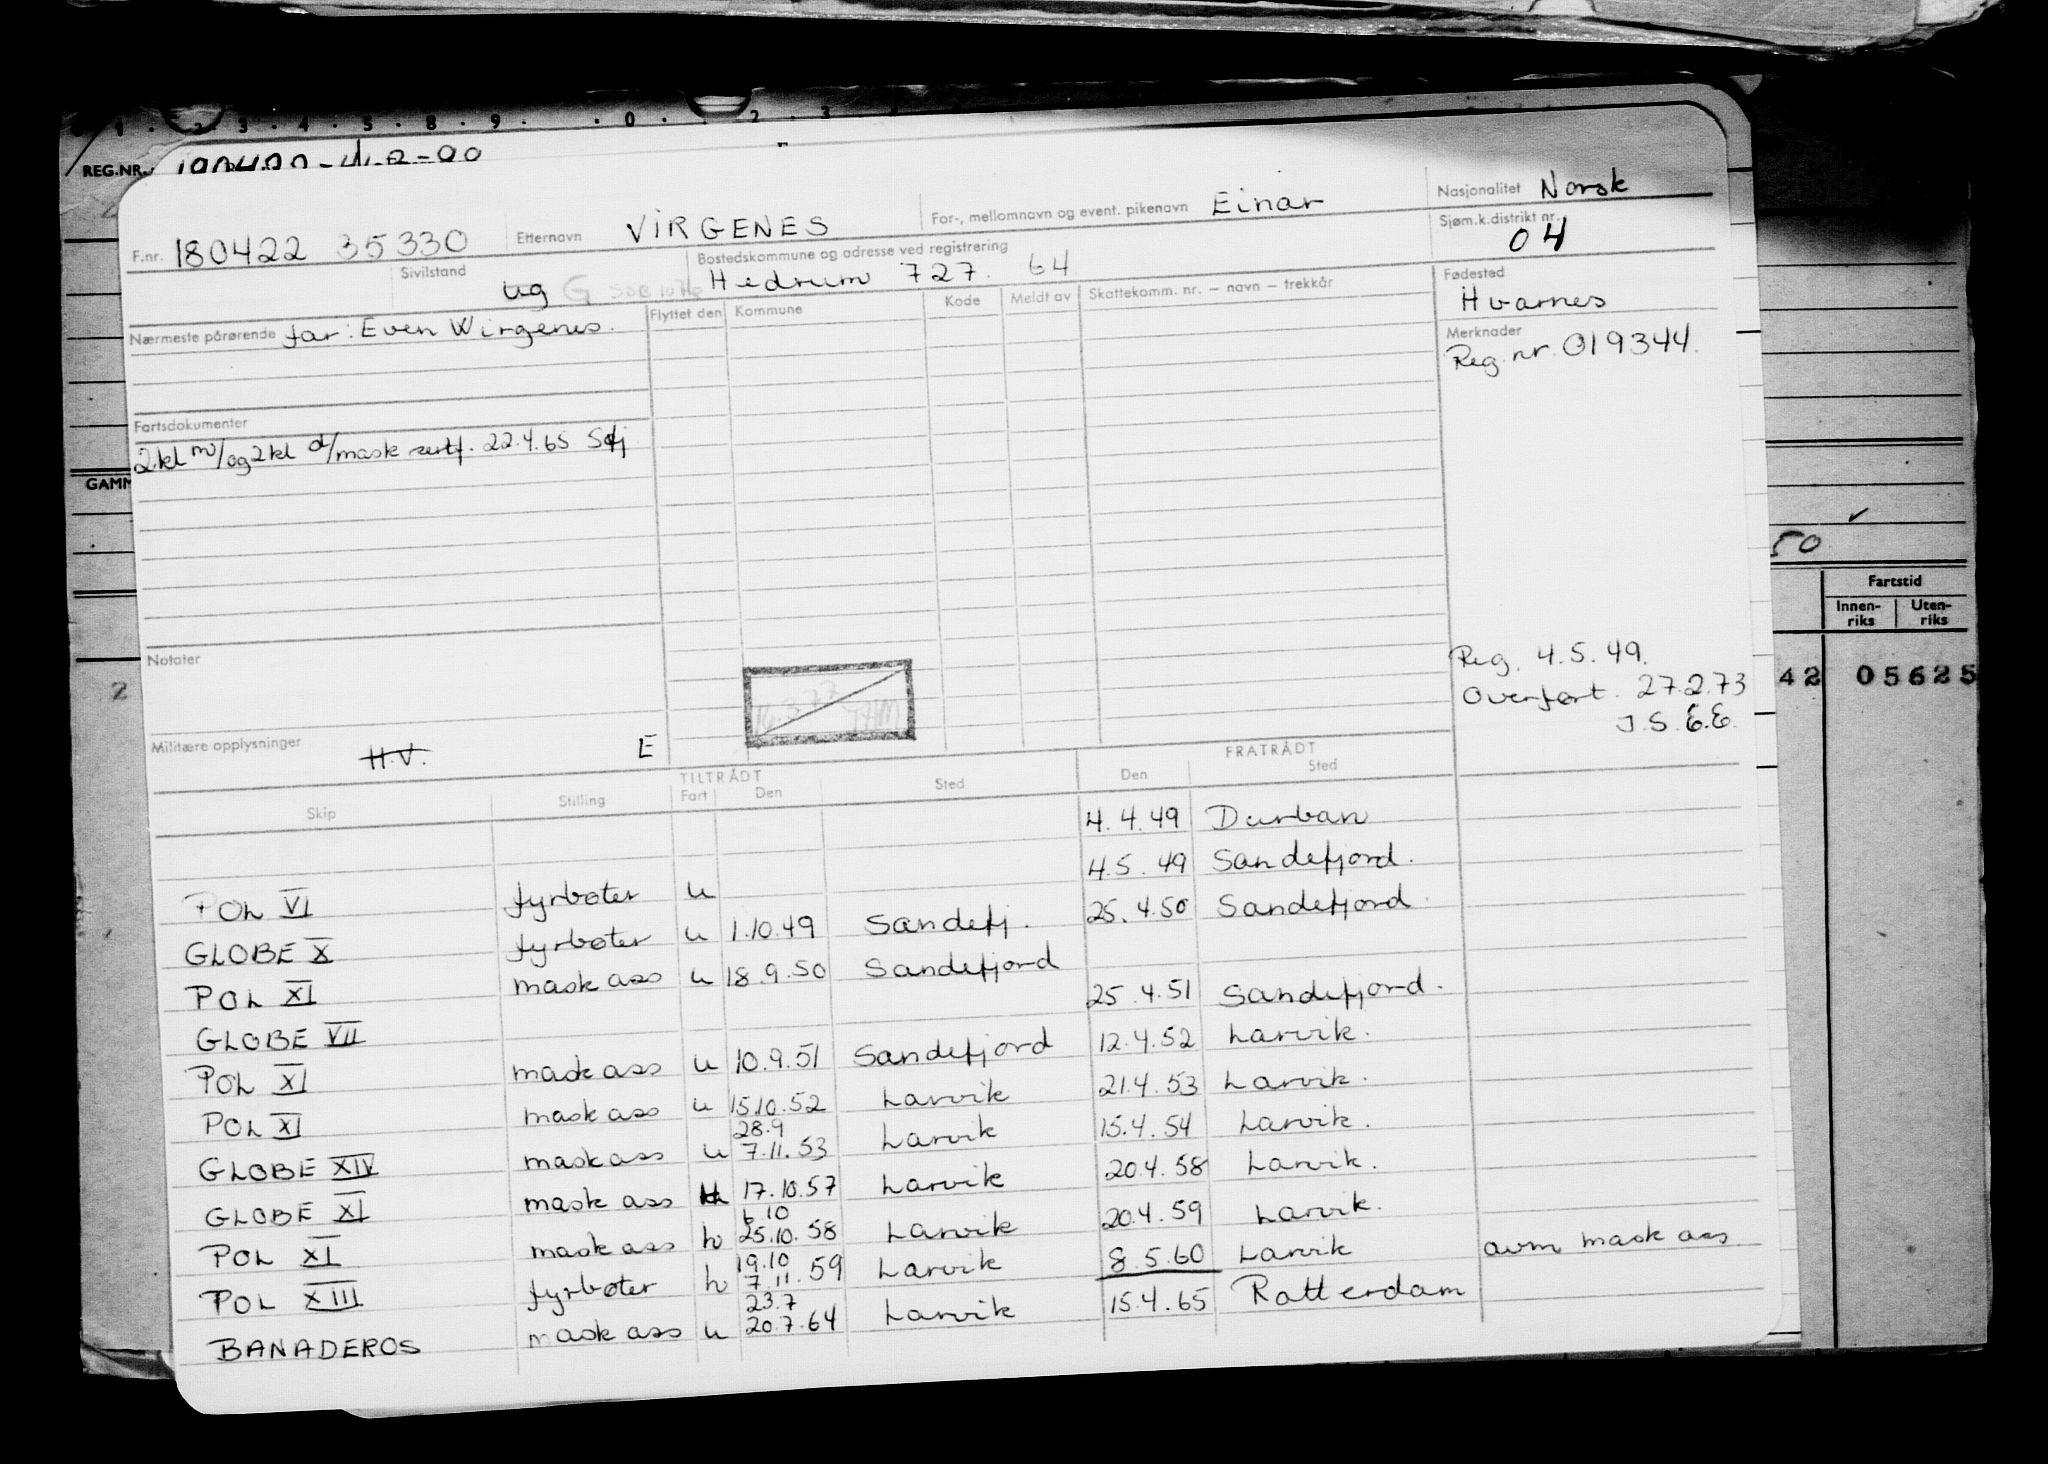 1 . 2 . 3 . 4 . 5 . 8 . 9 . . 0 . . 2 3
REG.NR.
F.nr. 180422 35330 Etternavn VIRGENES For-, mellomnavn og event. pikenavn Einar Nasjonalitet Norsk
Sivilstand ug G Bostedskommune og adresse ved registrering Hedrum 727. 64 Sjøm.k.distrikt nr. 04
Nærmeste pårørende far: Even Wirgenes. Flyttet den Kommune Kode Meldt av Skattekomm. nr. – navn – trekkår Fødested
Hvarnes
Merknader
Reg. nr 019344.
Fartsdokumenter
2.kl m/og 2kl d/mask sertf. 22.4.65 Sfj
GAMM
50
Fartstid
Innen-riks Uten-riks
Notater
Reg. 4.5.49.
2
42 05625
Overført. 27.2.73
J.S. E.E.
Militære opplysninger H.V. E
TILTRÅDT FRATRÅDT
Skip Stilling Fart Den Sted Den Sted
4.4.49 Durban
POL VI fyrbøter u 4.5.49 Sandefjord.
GLOBE X fyrbøter u 1.10.49 Sandefj. 25.4.50 Sandefjord.
POL XI mask ass u 18.9.50 Sandefjord
GLOBE VII 25.4.51 Sandefjord.
POL XI mask ass u 10.9.51 Sandefjord 12.4.52 Larvik.
POL XI mask ass u 15.10.52 Larvik 21.4.53 Larvik.
28.9
GLOBE XIV mask ass u 7.11.53 Larvik 15.4.54 Larvik.
GLOBE XI mask ass 17.10.57 Larvik 20.4.58 Larvik.
6.10
POL XI mask ass h 25.10.58 Larvik 20.4.59 Larvik.
19.10
POL XIII fyrbøter h 7.11.59 Larvik 8.5.60 Larvik avm mask ass
23.7
BANADEROS mask ass u 20.7.64 Larvik 15.4.65 Rotterdam